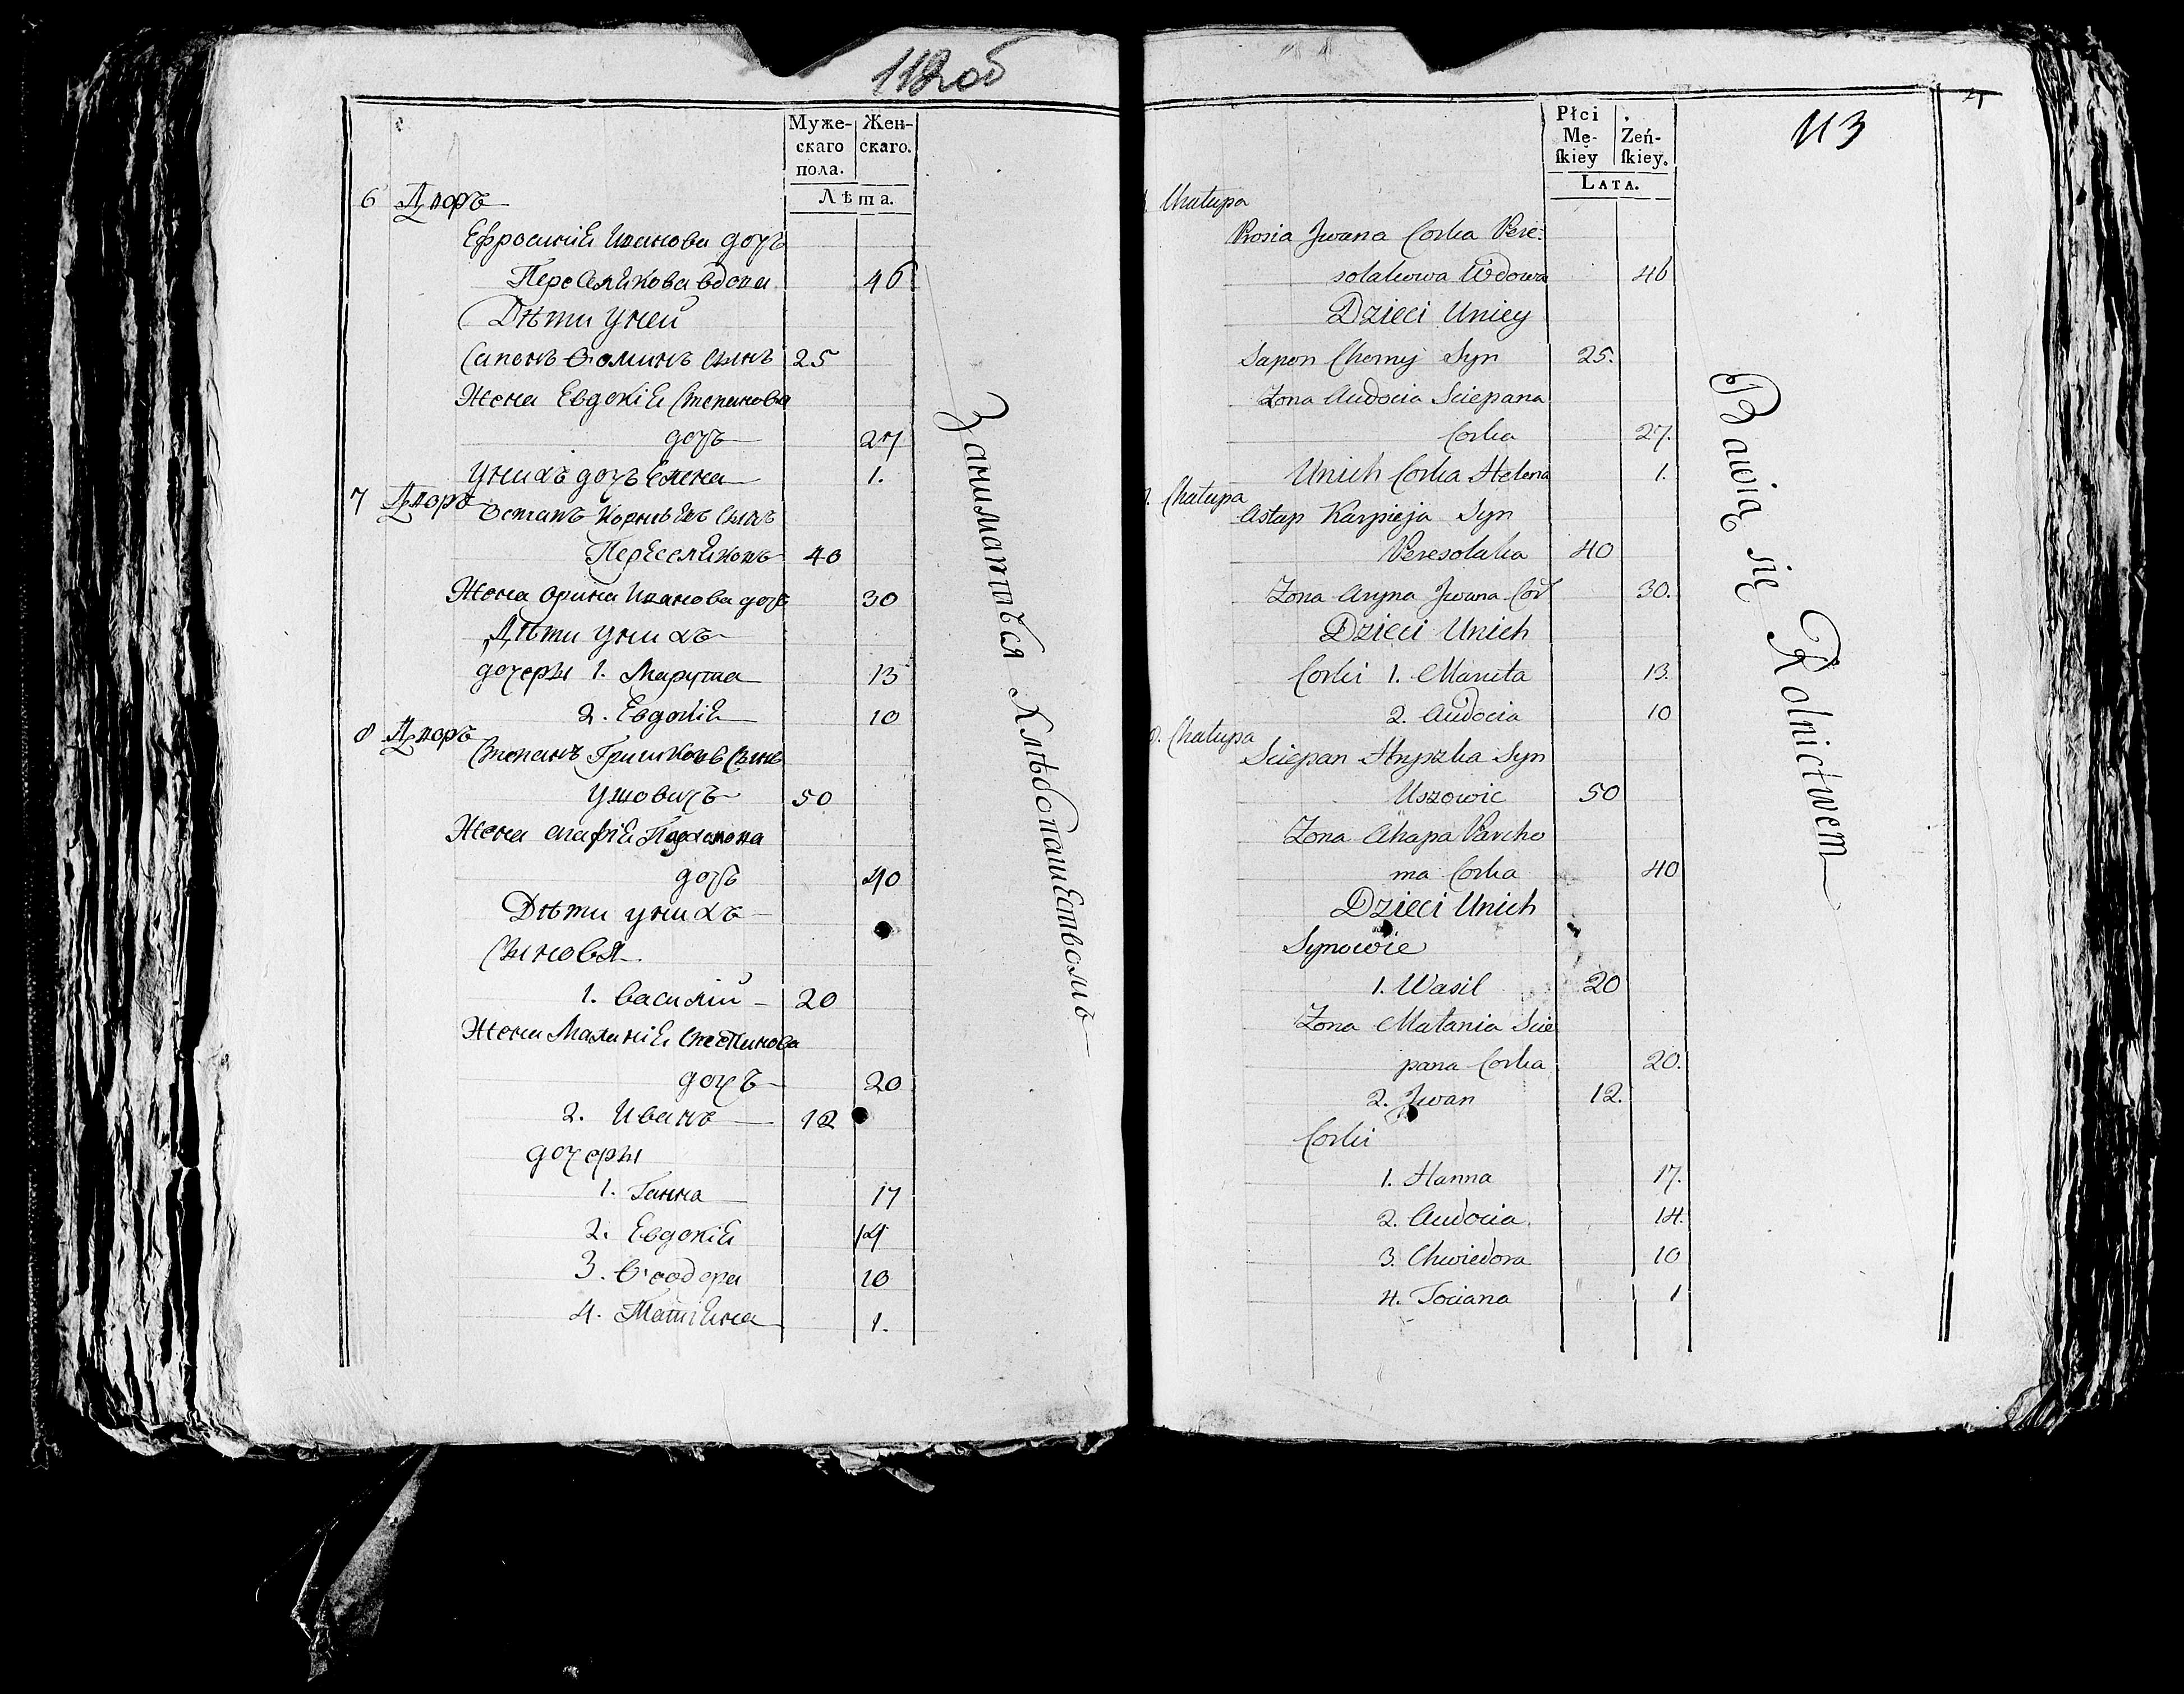 112об
Муже- Жен-
скаго скаго.
пола.
Лѣта.
6 Дворъ
Ефросинія Иванова дочъ
Переселякова вдова 46
Дѣти у ней
Сапонъ Ѳоминъ Сынъ 25
Жена Евдокія Степанова
дочъ 27
У нихъ дочъ Елена 1.
7 Дворъ
Остапъ Корнѣевъ Сынъ
Переселяковъ 40
Жена Орина Иванова дочъ 30
Дѣти у нихъ
дочеры 1. Марута 13
2. Евдокія 10
8 Дворъ
Степанъ Гришковъ Сынъ
Ушовичъ 50
Жена Агафія Пархомова
дочъ 40
Дѣти у нихъ
Сыновья
1. Василій 20
Жена Маланія Степанова
дочъ 20
2. Иванъ 12
дочеры
1. Ганна 17
2. Евдокія 14
3. Ѳеодора 10
4. Татіяна 1.
Заниматься Хлѣбопашествомъ
113
Płci
Mę- Żeń-
ſkiey ſkiey.
LATA.
Chałupa
Prosia Jwana Corka Pere:
solakowa Wdowa 46
Dzieci Uniey
Sapon Chomy Syn 25.
Żona Audocia Sciepana
Corka 27.
Unich Corka Helena 1.
Chałupa
Astap Karpieja Syn
Peresolaka 40
Żona Aryna Jwana Cor 30.
Dzieci Unich
Corki 1. Maruta 13.
2. Audocia 10
8. Chałupa
Sciepan Hryszka Syn
Uszowic 50
Żona Ahapa Parcho
ma Corka 40
Dzieci Unich
Synowie
1. Wasil 20
Żona Małania Scie
pana Corka 20.
2. Jwan 12.
Corki
1. Hanna 17.
2. Audocia 14.
3. Chwiedora 10
4. Tociana 1
Bawią się Rolnictwem